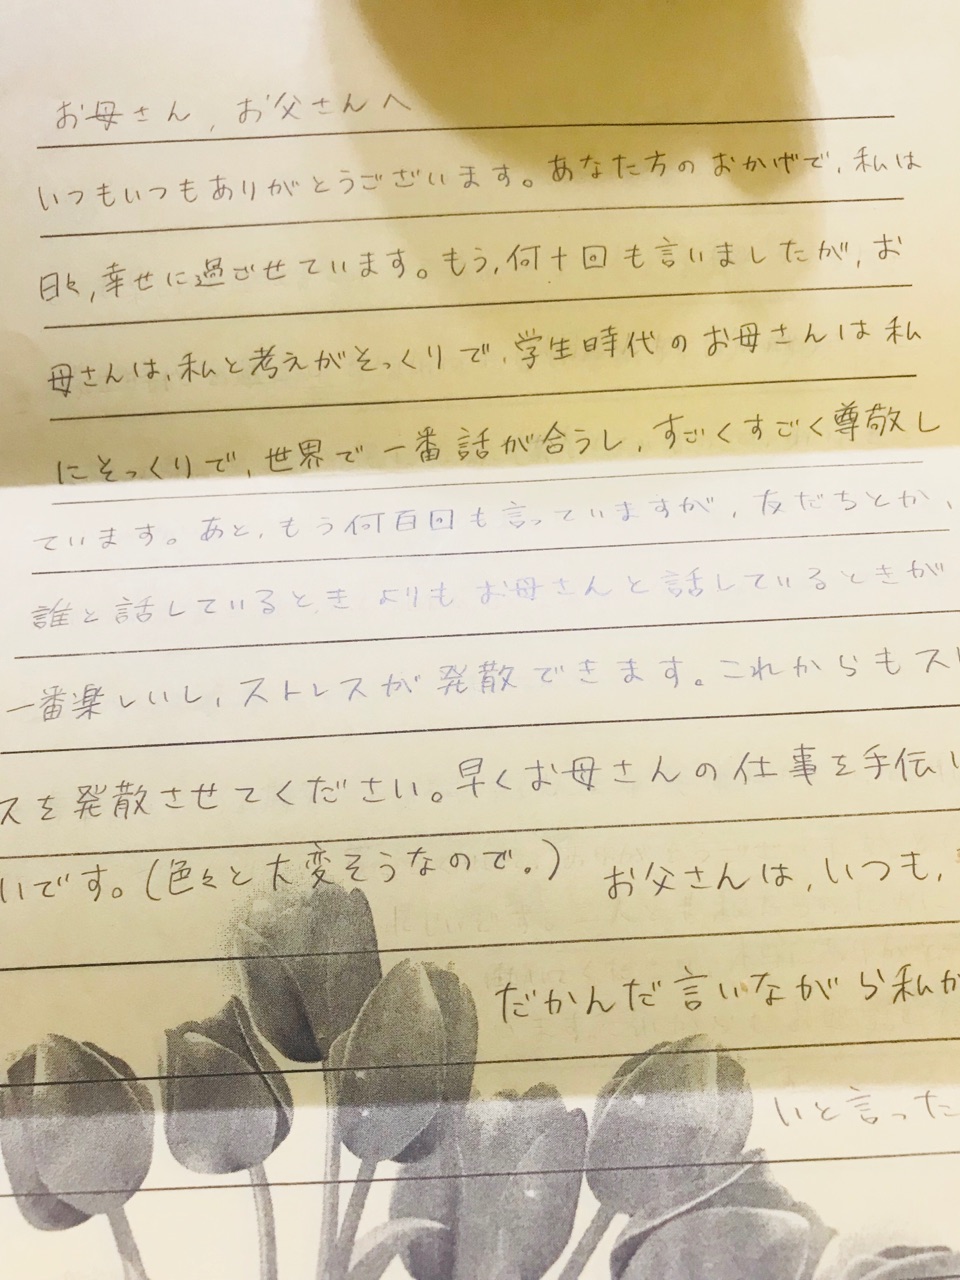 お母さん、お父さんへ
いつもいつもありがとうございます。あなた方のおかげで、私は
日々、幸せに過ごせています。もう、何十回も言いましたが、お
母さんは、私と考えがそっくりで、学生時代のお母さんは私
にそっくりで、世界で一番話が合うし、すごくすごく尊敬し
ています。あと、もう何百回も言っていますが、友だちとか、
誰と話しているときよりもお母さんと話しているときが
一番楽しいし、ストレスが発散できます。これからもスト
スを発散させてください。早くお母さんの仕事を手伝い
いです。(色々と大変そうなので。) お父さんは、いつも、
だかんだ言いながら私が
いと言った